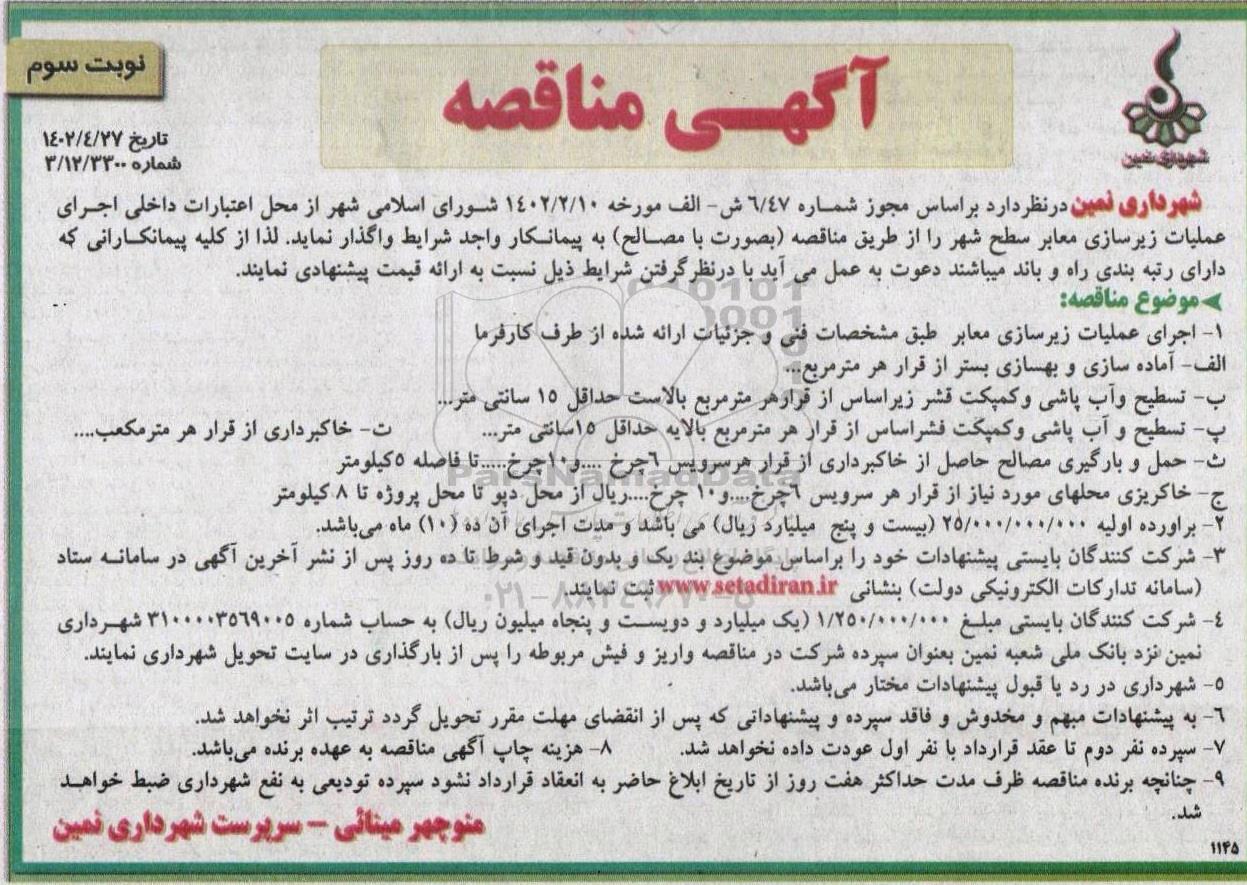 نوبت سوم
آگهی مناقصه
شهرداری نمین
تاریخ ۱۴۰۲/۴/۲۷
شماره ۳/۱۲/۳۳۰۰
شهرداری نمین درنظر دارد براساس مجوز شماره ۶/۴۷ ش- الف مورخه ۱۴۰۲/۲/۱۰ شورای اسلامی شهر از محل اعتبارات داخلی اجرای
عملیات زیرسازی معابر سطح شهر را از طریق مناقصه (بصورت با مصالح) به پیمانکار واجد شرایط واگذار نماید. لذا از کلیه پیمانکارانی که
دارای رتبه بندی راه و باند میباشند دعوت به عمل می آید با درنظرگرفتن شرایط ذیل نسبت به ارائه قیمت پیشنهادی نمایند.
موضوع مناقصه:
۱- اجرای عملیات زیرسازی معابر طبق مشخصات فنی و جزئیات ارائه شده از طرف کارفرما
الف- آماده سازی و بهسازی بستر از قرار هر مترمربع...
ب- تسطیح وآب پاشی وکمپکت قشر زیراساس از قرارهر مترمربع بالاست حداقل ۱۵ سانتی متر...
پ- تسطیح و آب پاشی وکمپکت قشراساس از قرار هر مترمربع بالایه حداقل ۱۵سانتی متر... ت- خاکبرداری از قرار هر مترمکعب....
ث- حمل و بارگیری مصالح حاصل از خاکبرداری از قرار هرسرویس ۶چرخ ....و۱۰چرخ.....تا فاصله ۵کیلومتر
ج- خاکریزی محلهای مورد نیاز از قرار هر سرویس ۶چرخ....و۱۰ چرخ....ریال از محل دپو تا محل پروژه تا ۸ کیلومتر
۲- براورده اولیه ۲۵/۰۰۰/۰۰۰/۰۰۰ (بیست و پنج میلیارد ریال) می باشد و مدت اجرای آن ده (۱۰) ماه می‌باشد.
۳- شرکت کنندگان بایستی پیشنهادات خود را براساس موضوع بند یک و بدون قید و شرط تا ده روز پس از نشر آخرین آگهی در سامانه ستاد
(سامانه تدارکات الکترونیکی دولت) بنشانی www.setadiran.ir ثبت نمایند.
۴- شرکت کنندگان بایستی مبلغ ۱/۲۵۰/۰۰۰/۰۰۰ (یک میلیارد و دویست و پنجاه میلیون ریال) به حساب شماره ۳۱۰۰۰۰۳۵۶۹۰۰۵ شهرداری
نمین نزد بانک ملی شعبه نمین بعنوان سپرده شرکت در مناقصه واریز و فیش مربوطه را پس از بارگذاری در سایت تحویل شهرداری نمایند.
۵- شهرداری در رد یا قبول پیشنهادات مختار می‌باشد.
۶- به پیشنهادات مبهم و مخدوش و فاقد سپرده و پیشنهاداتی که پس از انقضای مهلت مقرر تحویل گردد ترتیب اثر نخواهد شد.
۷- سپرده نفر دوم تا عقد قرارداد با نفر اول عودت داده نخواهد شد. ۸- هزینه چاپ آگهی مناقصه به عهده برنده می‌باشد.
۹- چنانچه برنده مناقصه ظرف مدت حداکثر هفت روز از تاریخ ابلاغ حاضر به انعقاد قرارداد نشود سپرده تودیعی به نفع شهرداری ضبط خواهد
شد.
منوچهر مینائی – سرپرست شهرداری نمین
۱۱۴۵
ParsNamadData